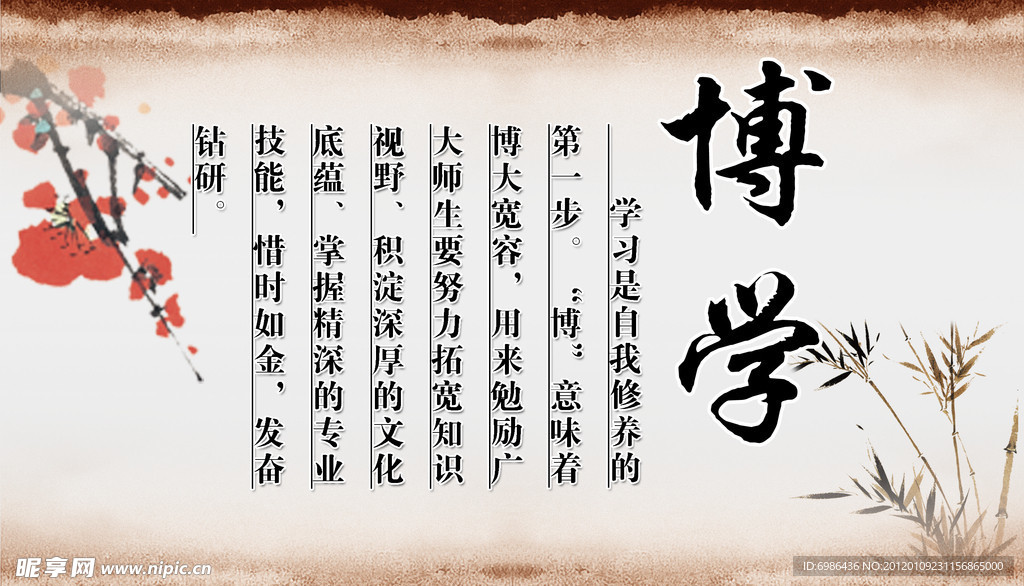 博学
学习是自我修养的
第一步。“博”意味着
博大宽容，用来勉励广
大师生要努力拓宽知识
视野、积淀深厚的文化
底蕴、掌握精深的专业
技能，惜时如金，发奋
钻研。
昵享网 www.nipic.cn
ID:6986436 NO:20120109231156865000